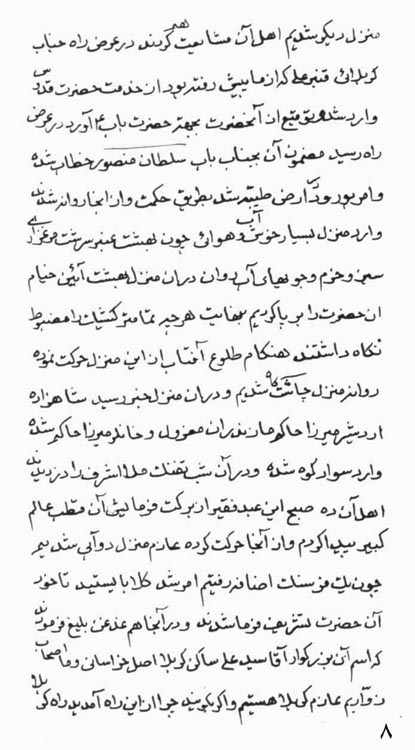 منزل دیگر شدیم اهل آن مشایعت هم کردند در عرض راه جناب
کربلائی قنبرعلی که از ما پیش رفته بود از خدمت حضرت قدوس
وارد شد و توقیع از آنحضرت بجهة حضرت باب ع آورد در عرض
راه رسید مضمون آن بجناب باب سلطان منصور خطاب شده
و امر بورود ارض طیبه شد بطریق حکمت و از انجا روانه شدند
وارد منزل بسیار خوش آب و هوائی چون بهشت عنبر سرشت مرغزاری
سبز و خرم و جویهای آب روان در ان منزل بهشت آئین خیام
ان حضرت را بر پا کردیم بنهایت هر چه تمامتر کشیک را مضبوط
نگاه داشتند هنگام طلوع آفتاب از این منزل حرکت نموده
روانه منزل چاشت گاه شدیم و در ان منزل خبر رسید شاهزاده
اردشیر میرزا حاکم مازندران معزول و خانلر میرزا حاکم شده
وارد سوار کوه شده و در آن شب تفنک ملا اشرف را دزدیدند
اهل آن ده صبح این عبد فقیر از برکت فرمایش آن قطب عالم
کبیر پیدا کردم و از آنجا حرکت کرده عازم منزل دوآبی شدیم
چون یک فرسنک اضافه رفتیم امر شد کلا بایستید تا خود
آن حضرت تشریف فرما شدند و در آنجا هم غدغن بلیغ فرمودند
که اسم آن بزرگوار آقا سید علی ساکن کربلا اصل خراسانی و ما اصحاب
زواریم عازم کربلا هستیم و اگر بگویند چرا از این راه آمدید راه کربلا
۸